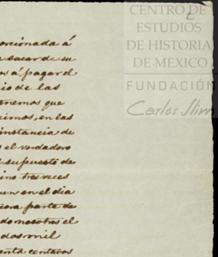 CENTRO DE
ESTUDIOS
DE HISTORIA
DE MEXICO
FUNDACIÓN
Carlos Slim
orcionada á
sacar de su
s á pagar el
io de las
enemos que
cimos, en las
instancia de
s el verdadero
l supuesto de
ino tres veces
un en el dia
parte de
do nosotros el
dos mil
enta centavos